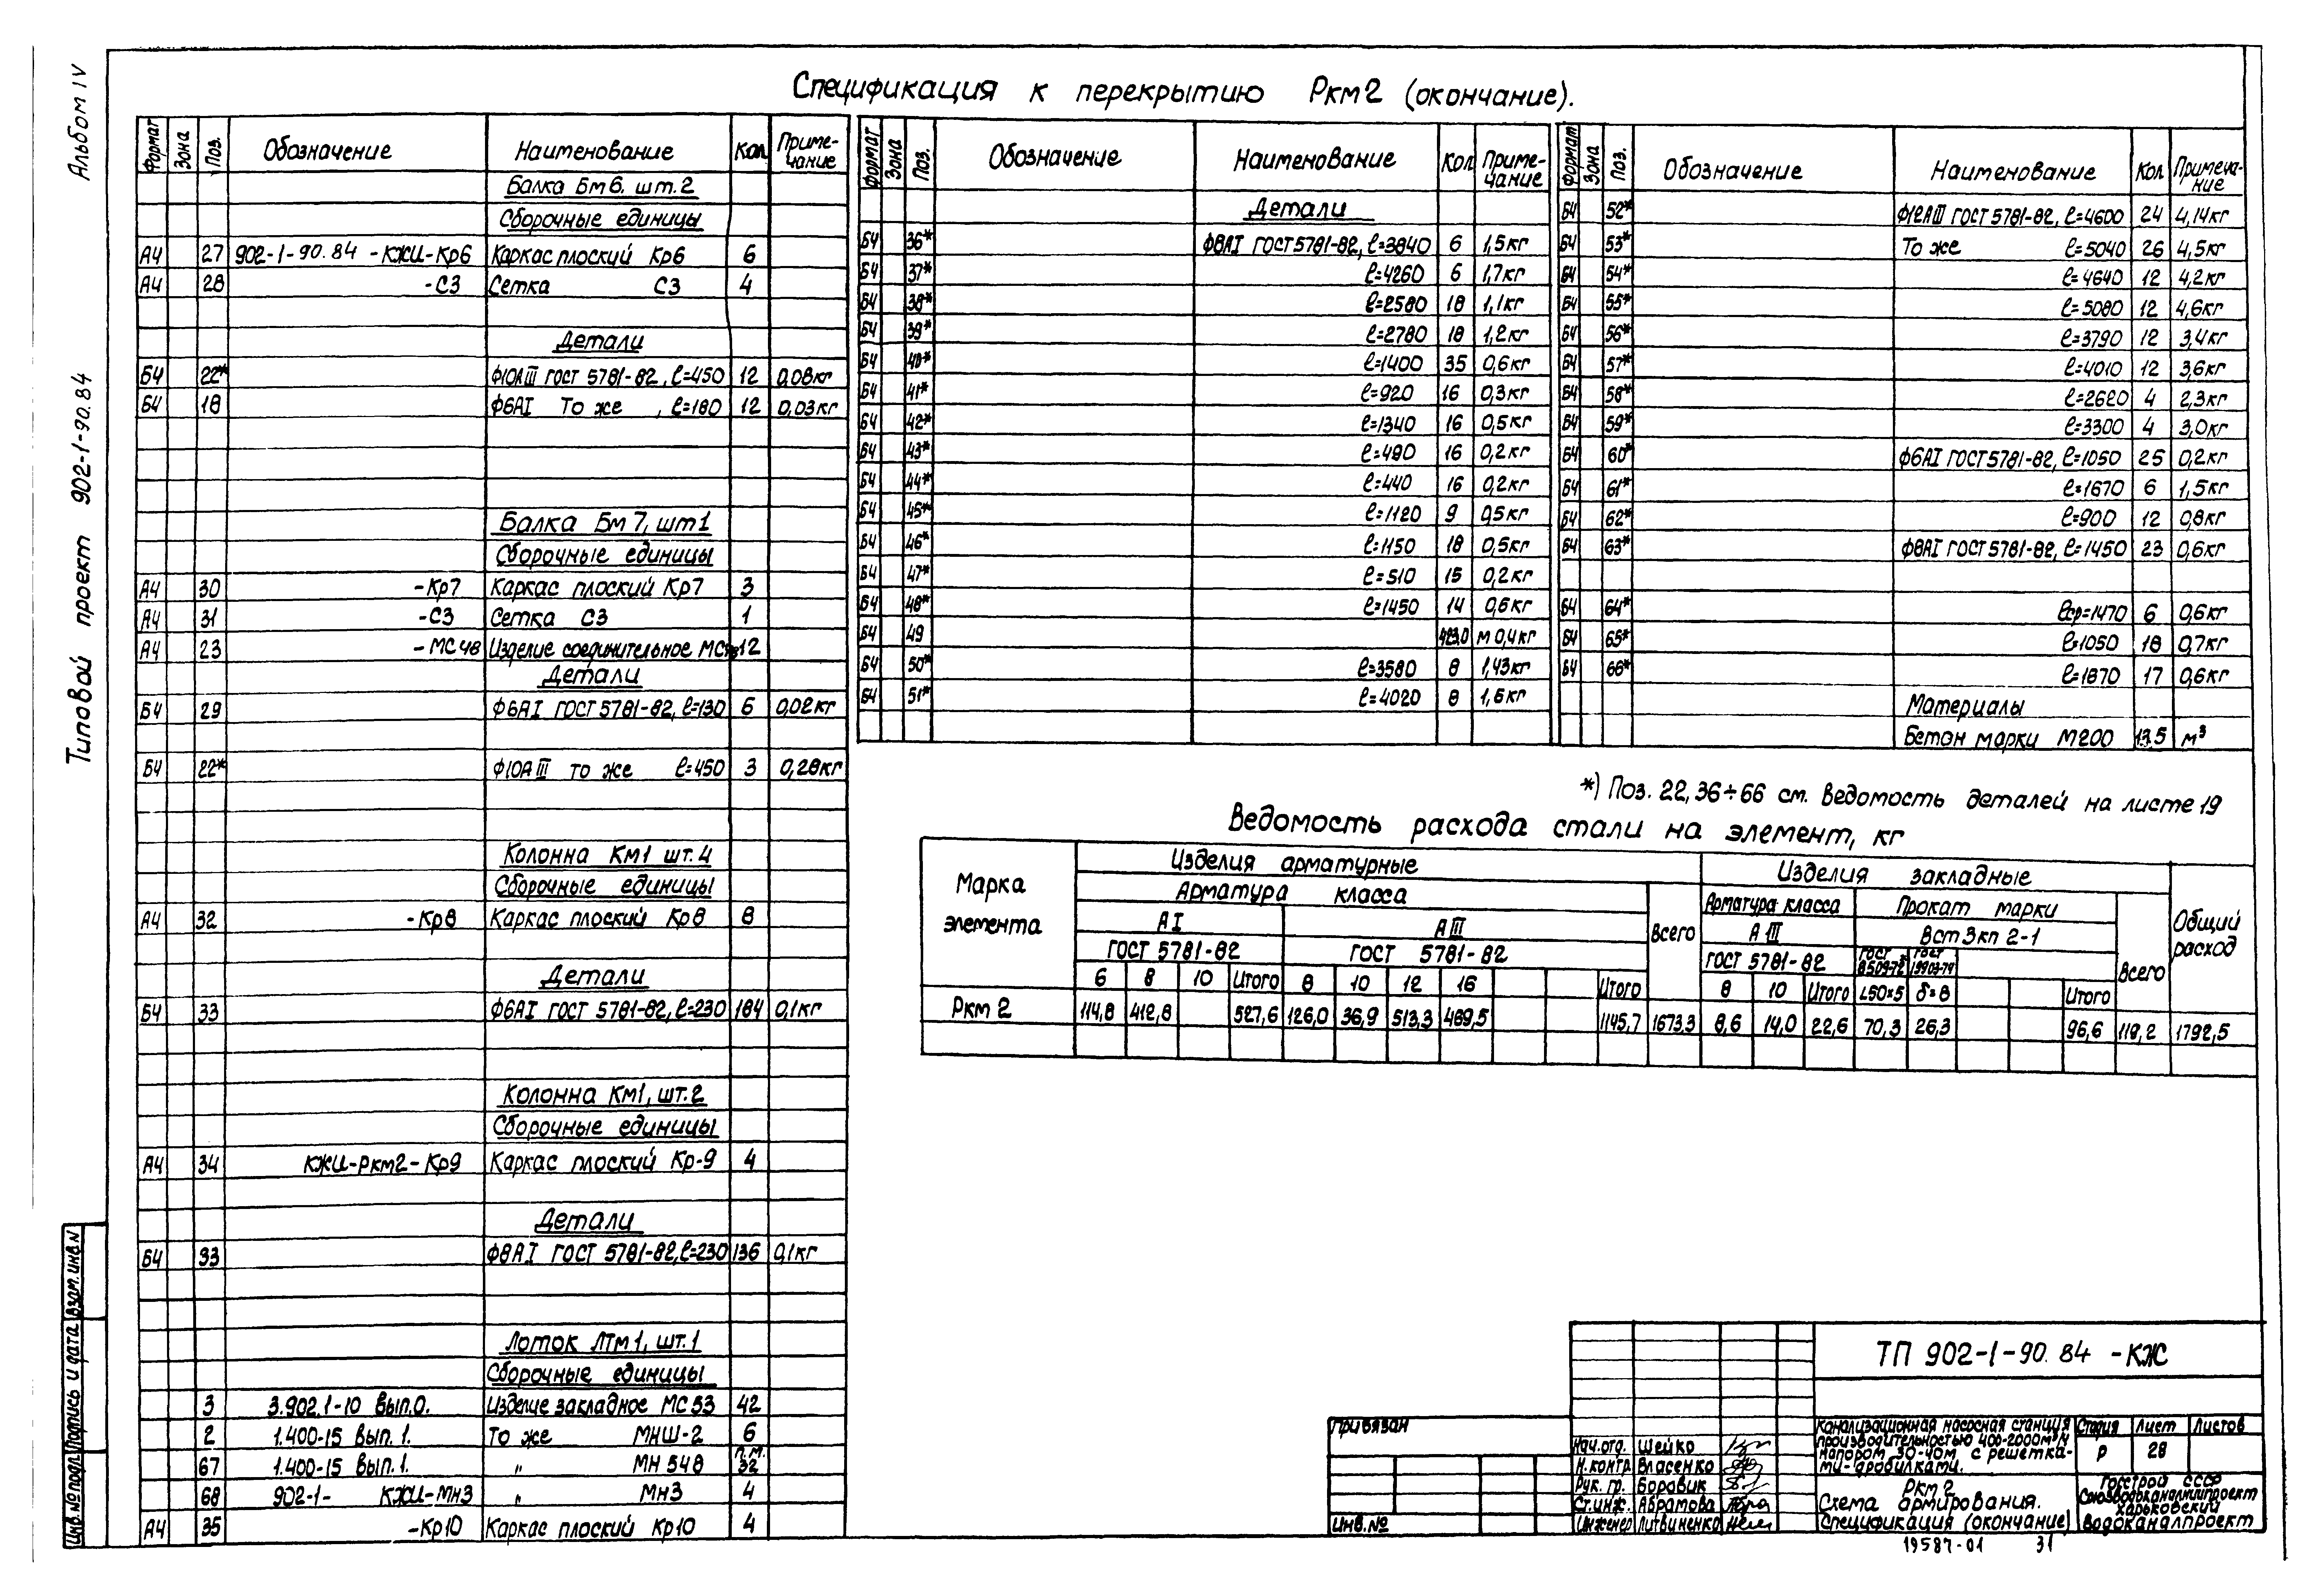 Альбом IV
Типовой проект 902-1-90.84
Спецификация к перекрытию Ркм2 (окончание).
Формат Зона Поз. Обозначение Наименование Кол Примечание
Балка Бм6. шт.2
Сборочные единицы
А4 27 902-1-90.84-КЖИ-Кр6 Каркас плоский Кр6 6
А4 28 -С3 Сетка С3 4
Детали
Б4 22* Ф10АIII ГОСТ 5781-82, ℓ=450 12 0,08кг
Б4 18 Ф6АI То же , ℓ=180 12 0,03кг
Балка Бм7, шт1
Сборочные единицы
А4 30 -Кр7 Каркас плоский Кр7 3
А4 31 -С3 Сетка С3 1
А4 23 -МС48 Изделие соединительное 12
Детали
Б4 29 Ф6АI ГОСТ 5781-82, ℓ=130 6 0,02кг
Б4 22* Ф10АIII то же ℓ=450 3 0,28кг
Колонна Км1 шт.4
Сборочные единицы
А4 32 -Кр8 Каркас плоский Кр8 8
Детали
Б4 33 Ф6АI ГОСТ 5781-82, ℓ=230 184 0,1кг
Колонна Км1, шт.2
Сборочные единицы
А4 34 КЖИ-Ркм2-Кр9 Каркас плоский Кр-9 4
Детали
Б4 33 Ф8АI ГОСТ 5781-82, ℓ=230 136 0,1кг
Лоток Лтм1, шт.1
Сборочные единицы
3 3.902.1-10 Вып.0. Изделие закладное МС53 42
2 1.400-15 Вып.1. То же МНШ-2 6
67 1.400-15 Вып.1. " МН 548 п.м. 32
68 902-1- КЖИ-Мн3 " Мн3 4
А4 35 -Кр10 Каркас плоский Кр10 4
Формат Зона Поз. Обозначение Наименование Кол Примечание
Детали
Б4 36* Ф8АI ГОСТ5781-82, ℓ=3840 6 1,5кг
Б4 37* ℓ=4260 6 1,7кг
Б4 38* ℓ=2580 18 1,1кг
Б4 39* ℓ=2780 18 1,2кг
Б4 40* ℓ=1400 35 0,6кг
Б4 41* ℓ=920 16 0,3кг
Б4 42* ℓ=1340 16 0,5кг
Б4 43* ℓ=490 16 0,2кг
Б4 44* ℓ=440 16 0,2кг
Б4 45* ℓ=1120 9 0,5кг
Б4 46* ℓ=1150 18 0,5кг
Б4 47* ℓ=510 15 0,2кг
Б4 48* ℓ=1450 14 0,6кг
Б4 49 м 0,4кг
Б4 50* ℓ=3580 8 1,43кг
Б4 51* ℓ=4020 8 1,6кг
Формат Зона Поз. Обозначение Наименование Кол Примечание
Б4 52* Ф12АIII ГОСТ 5781-82, ℓ=4600 24 4,14кг
Б4 53* То же ℓ=5040 26 4,5кг
Б4 54* ℓ=4640 12 4,2кг
Б4 55* ℓ=5080 12 4,6кг
Б4 56* ℓ=3790 12 3,4кг
Б4 57* ℓ=4010 12 3,6кг
Б4 58* ℓ=2620 4 2,3кг
Б4 59* ℓ=3300 4 3,0кг
Б4 60* Ф6АI ГОСТ5781-82, ℓ=1050 25 0,2кг
Б4 61* ℓ=1670 6 1,5кг
Б4 62* ℓ=900 12 0,8кг
Б4 63* Ф8АI ГОСТ5781-82, ℓ=1450 23 0,6кг
Б4 64* ℓср=1470 6 0,6кг
Б4 65* ℓ=1050 18 0,7кг
Б4 66* ℓ=1870 17 0,6кг
Материалы
Бетон марки М200 13.5 м³
*) Поз. 22, 36÷66 см. ведомость деталей на листе 19
Ведомость расхода стали на элемент, кг
Марка элемента Изделия арматурные Изделия закладные Общий расход
Арматура класса Всего Арматура класса Прокат марки Всего
АI АIII АIII Вст3кп 2-1
ГОСТ 5781-82 ГОСТ 5781-82 ГОСТ 5781-82 ГОСТ 8509-72 ГОСТ 19903-74
6 8 10 Итого 8 10 12 16 Итого 8 10 Итого L50×5 δ=8 Итого
Ркм 2 114,8 412,8 527,6 126,0 36,9 513,3 469,5 1145,7 1673,3 8,6 14,0 22,6 70,3 26,3 96,6 119,2 1792,5
Привязан
Инв.№
ТП 902-1-90.84 -КЖ
Нач.отд. Шейко
Н.контр. Власенко
Рук. гр. Боравик
Ст.инж. Абрамова
Инженер Литвиненко
Канализационная насосная станция
производительностью 400-2000м³/ч
напором 30-40м с решетка-
ми-дробилками.
Стадия Лист Листов
Р 28
Ркм2
Схема армирования.
Спецификация (окончание)
Госстрой СССР
Союзводоканалниипроект
Харьковский
Водоканалпроект
19587-01 31
Инв.№ подл. Подпись и дата Взам.инв.N